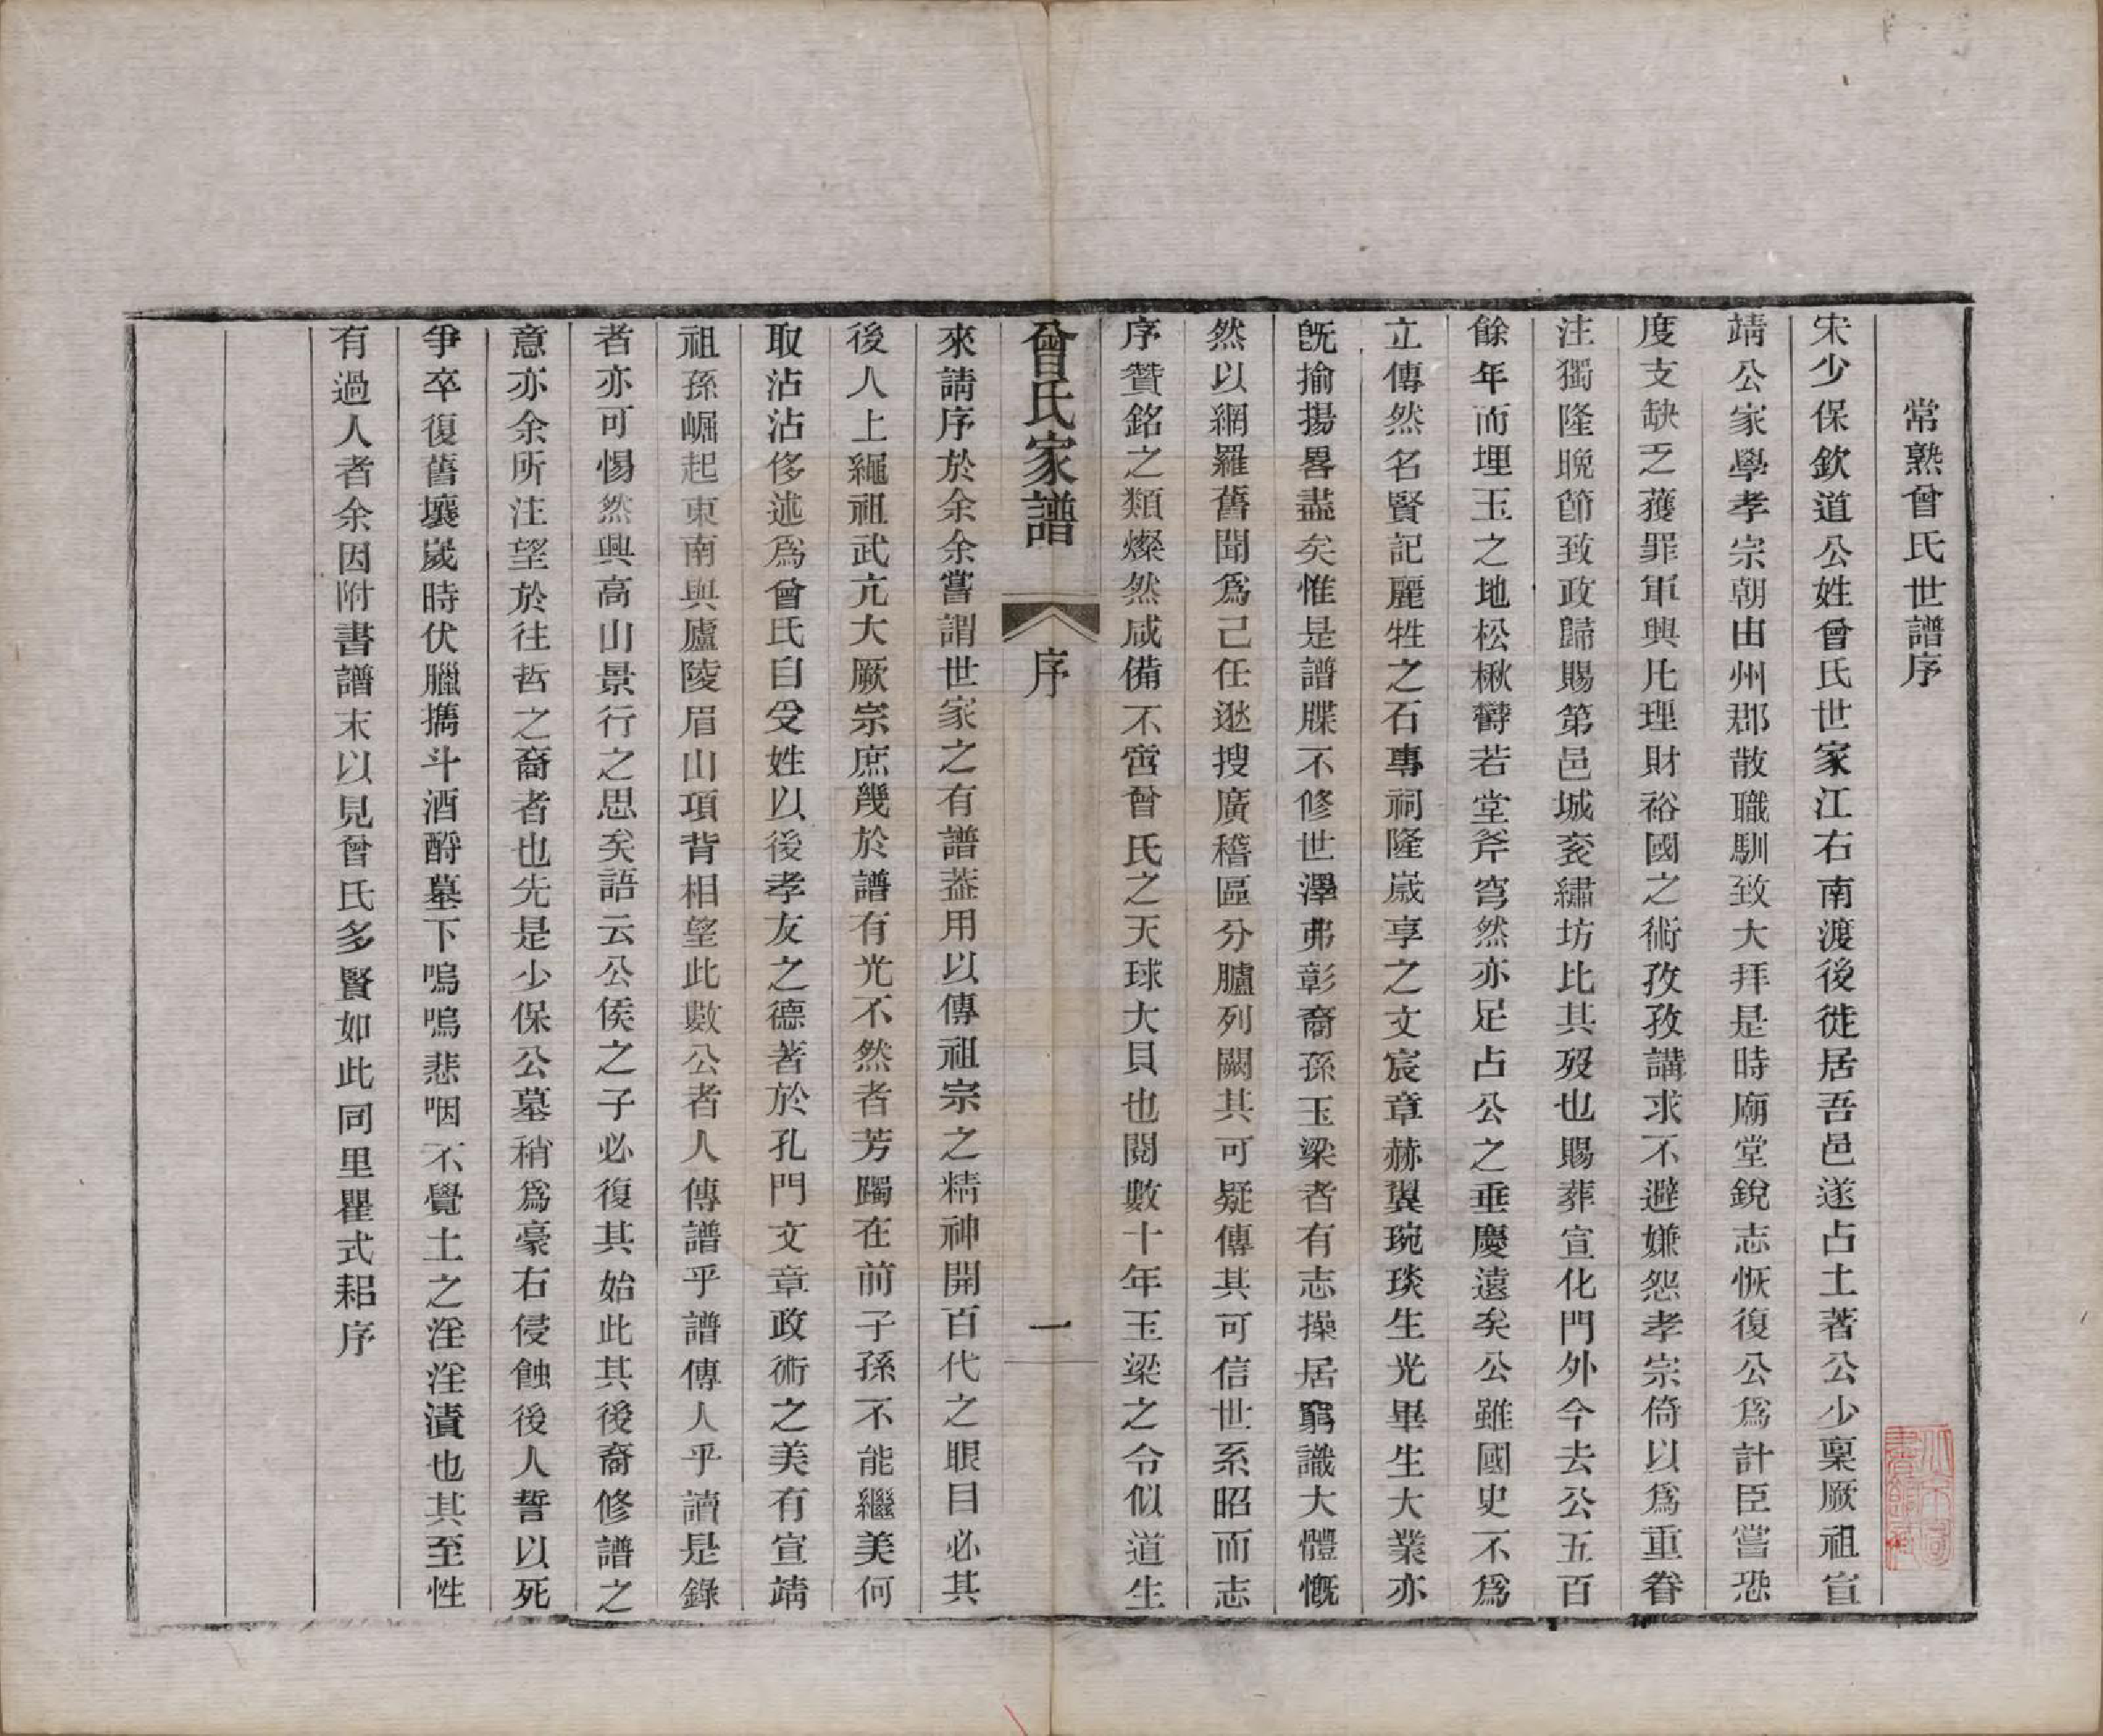 常熟曾氏世譜序
宋少保欽道公姓曾氏世家江右南渡後徙居吾邑遂占土著公少稟厥祖宣
靖公家學孝宗朝由州郡散職馴致大拜是時廟堂銳志恢復公爲計臣嘗恐
度支缺乏獲罪軍興凡理財裕國之術孜孜講求不避嫌怨孝宗倚以爲重眷
注獨隆晩節致政歸賜第邑城衮繡坊比其歿也賜葬宣化門外今去公五百
餘年而埋玉之地松楸欝若堂斧穹然亦足占公之垂慶遠矣公雖國史不爲
立傳然名賢記麗牲之石專祠隆歲享之文宸章赫翼琬琰生光畢生大業亦
旣揄揚畧盡矣惟是譜牒不修世澤弗彰裔孫玉梁者有志操居窮識大體慨
然以網羅舊聞爲己任逖搜廣稽區分臚列闕其可疑傳其可信世系昭而志
序贊銘之類燦然咸備不啻曾氏之天球大貝也閱數十年玉梁之令似道生
曾氏家譜 序 一
來請序於余余嘗謂世家之有譜葢用以傳祖宗之精神開百代之眼目必其
後人上繩祖武亢大厥宗庶幾於譜有光不然者芳躅在前子孫不能繼美何
取沾沾侈述爲曾氏自受姓以後孝友之德著於孔門文章政術之美有宣靖
祖孫崛起東南與廬陵眉山項背相望此數公者人傳譜乎譜傳人乎讀是錄
者亦可惕然興高山景行之思矣語云公侯之子必復其始此其後裔修譜之
意亦余所注望於往哲之裔者也先是少保公墓稍爲豪右侵蝕後人誓以死
爭卒復舊壤歲時伏臘攜斗酒酹墓下嗚嗚悲咽不覺土之淫淫漬也其至性
有過人者余因附書譜末以見曾氏多賢如此同里瞿式耜序